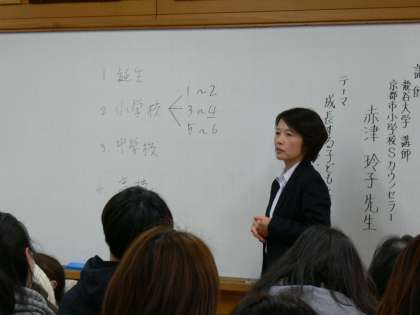 講師
龍谷大学 講師
京都市小学校Sカウンセラー
赤津 玲子 先生
テーマ
成長する子ども
1. 誕生
2. 小学校
1〜2
3〜4
5〜6
3. 中学校
4.